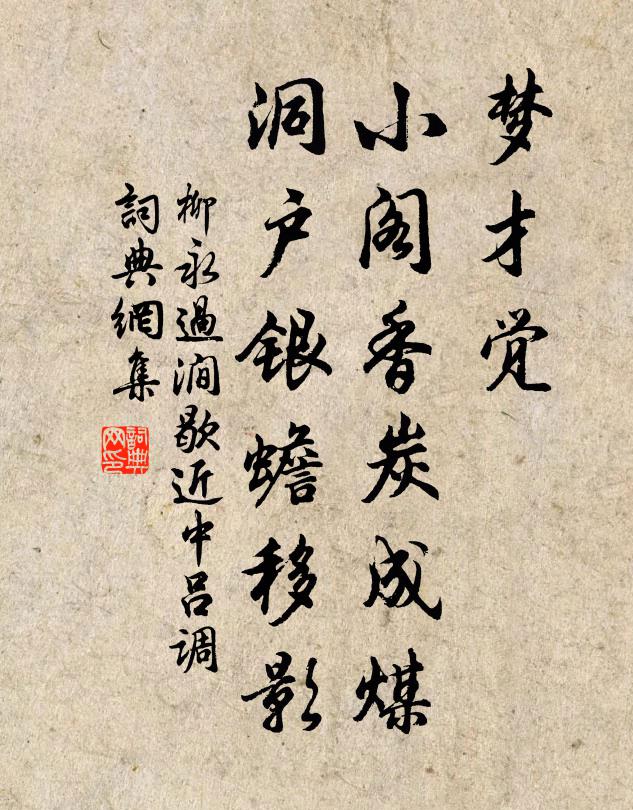 梦才觉
小阁香炭成煤
洞户银蟾移影
柳永過澗歇近中吕调
詞典網集
詞典网印